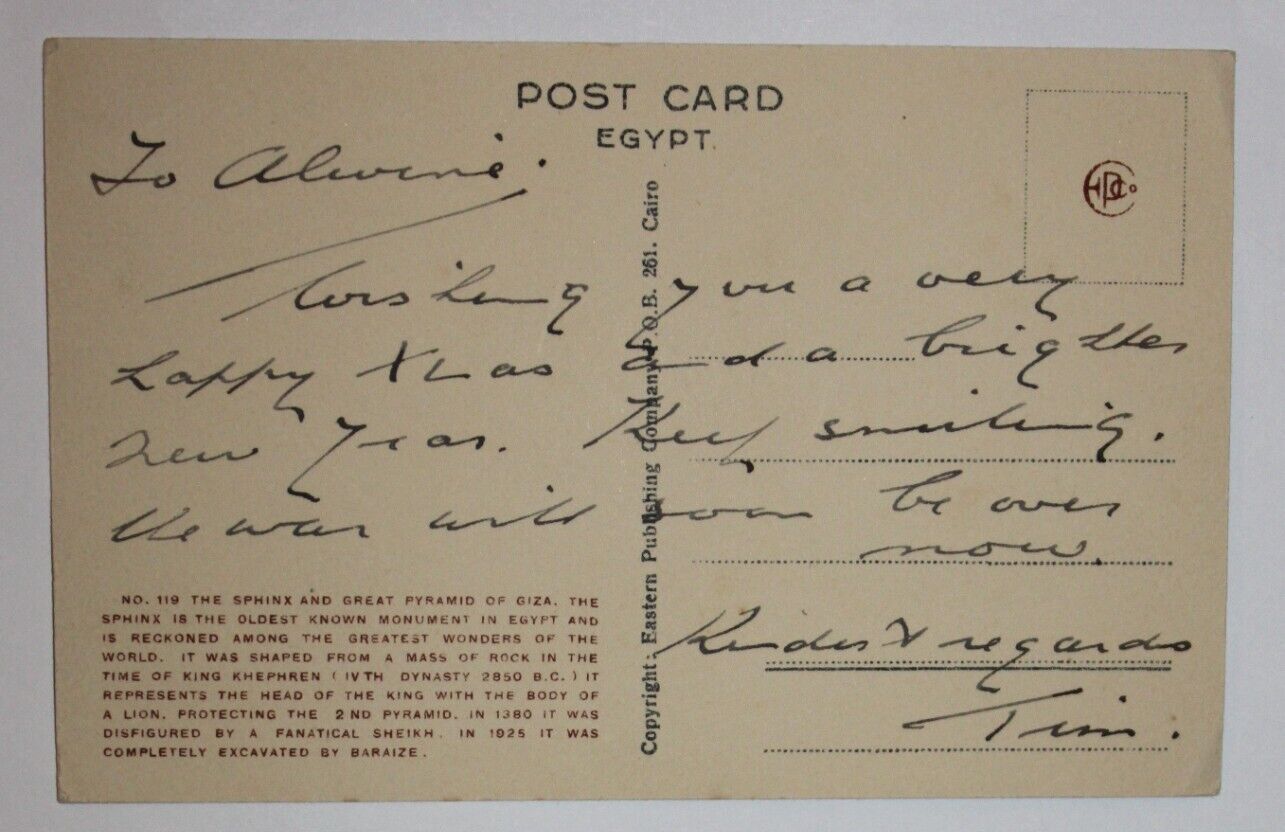 POST CARD
EGYPT.
To Alwine.
Wishing you a very
happy Xmas and a brighter
new year. Keep smiling.
the war will soon be over
now.
Kindest regards
Tim.
NO. 119 THE SPHINX AND GREAT PYRAMID OF GIZA. THE
SPHINX IS THE OLDEST KNOWN MONUMENT IN EGYPT AND
IS RECKONED AMONG THE GREATEST WONDERS OF THE
WORLD. IT WAS SHAPED FROM A MASS OF ROCK IN THE
TIME OF KING KHEPHREN (IVTH DYNASTY 2850 B.C.) IT
REPRESENTS THE HEAD OF THE KING WITH THE BODY OF
A LION. PROTECTING THE 2ND PYRAMID. IN 1380 IT WAS
DISFIGURED BY A FANATICAL SHEIKH. IN 1925 IT WAS
COMPLETELY EXCAVATED BY BARAIZE.
Copyright: Eastern Publishing Company. P.O.B. 261. Cairo